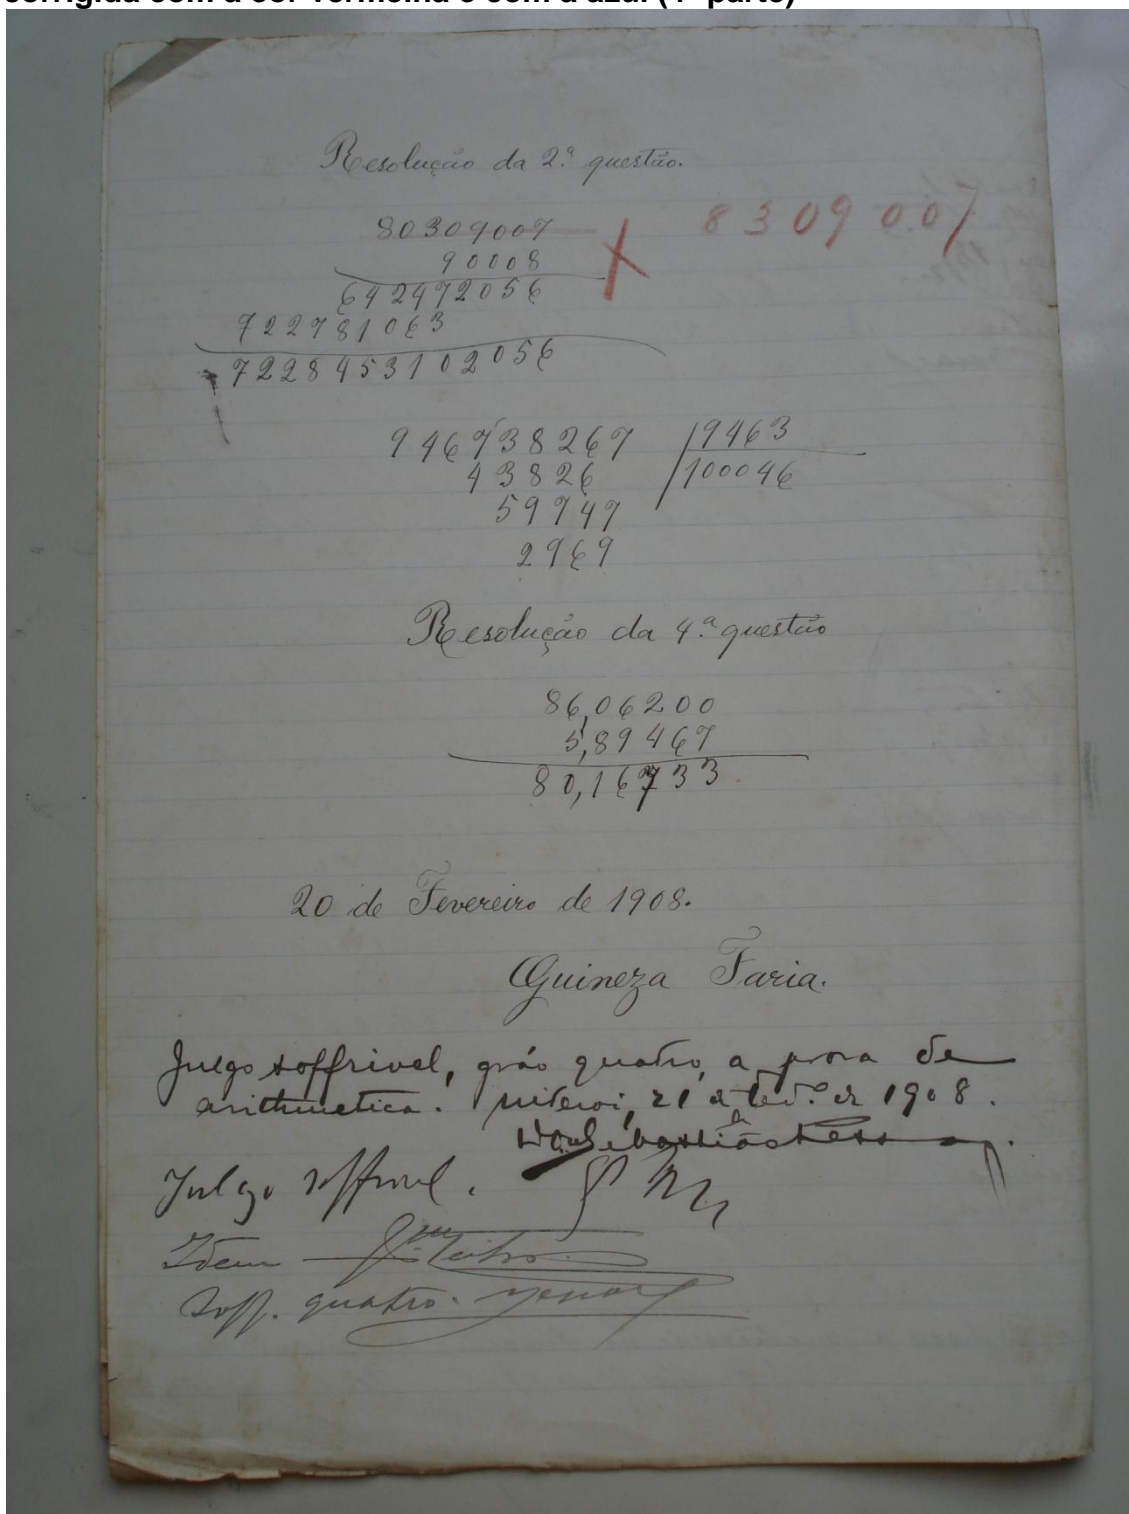 corrigida com a cor vermelha e com a azul (1ª parte)
Resolução da 2.ª questão.
80309007 8309007
90008
642472056
722781063
7228453102056
946738267 9463
43826 100046
59747
2969
Resolução da 4.ª questão
86,06200
5,89467
80,16733
20 de Fevereiro de 1908.
Guineza Faria.
Julgo soffrivel, gráo quatro, a prova de
arithmetica. Niteroi, 21 de Fev.º de 1908.
Julgo soffrivel.
Idem
Soff. quatro.